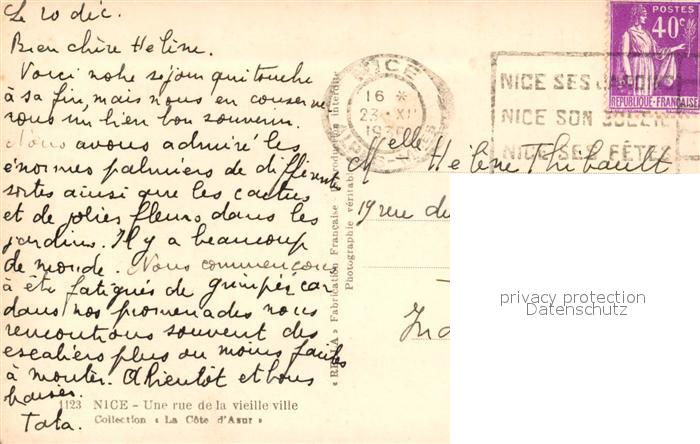 Le 20 déc.
Bien chère Hélène.
Voici notre séjour qui touche
à sa fin, mais nous en conserve
rons un bien bon souvenir.
Nous avons admiré les
énormes palmiers de différentes
sortes ainsi que les cactus
et de jolies fleurs dans les
jardins. Il y a beaucoup
de monde. Nous commençons
à être fatigués de grimper car
dans nos promenades nous
rencontrons souvent des
escaliers plus ou moins faciles
à monter. A bientôt et bons
baisers.
Tata.
1123 NICE - Une rue de la vieille ville
Collection « La Côte d'Azur »
« RELLA » Fabrication Française - Reproduction interdite
Photographie véritable
NICE
16 *
23 XII
NICE SES JARDINS
NICE SON SOLEIL
NICE SES FÊTES
POSTES
40c
REPUBLIQUE-FRANÇAISE
Melle Hélène Thibault
19 rue du
privacy protection
Datenschutz